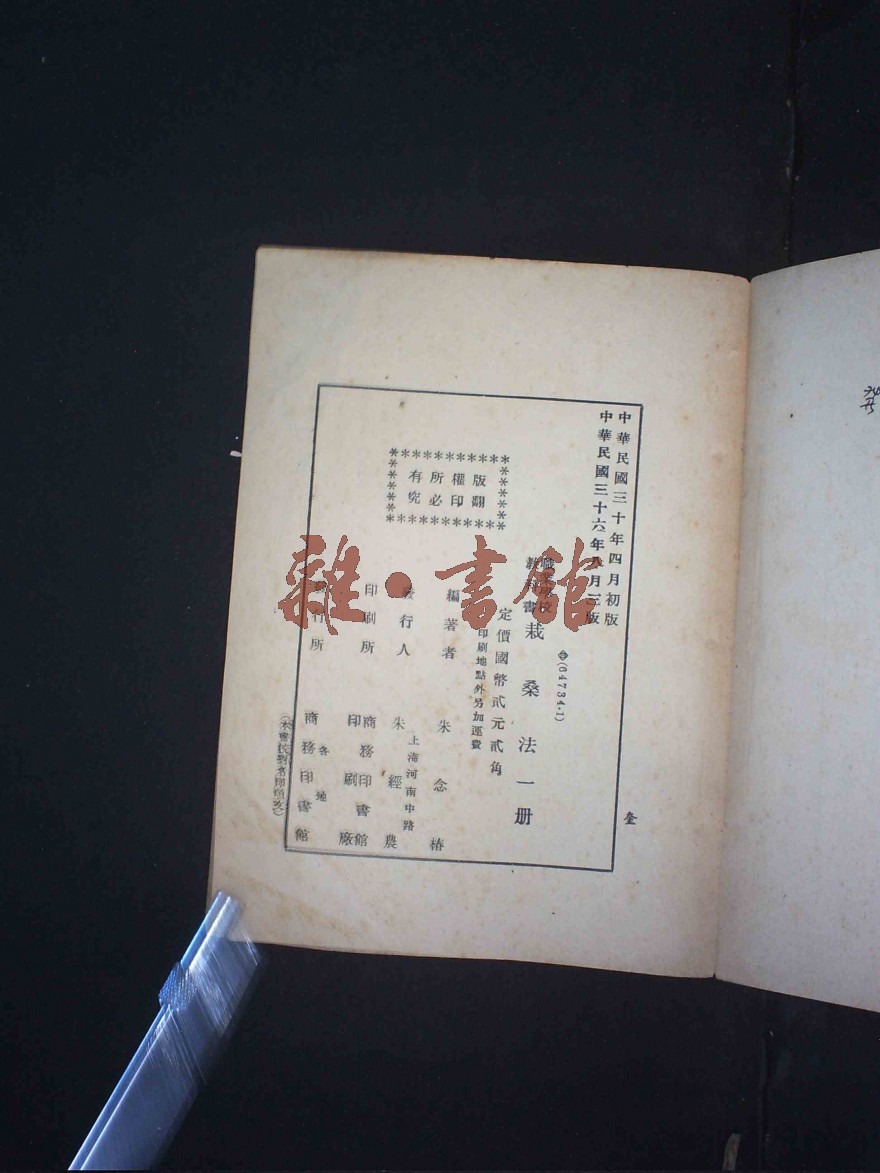 中華民國三十年四月初版
中華民國三十六年八月三版
(64734·1)
職業學校
教科書
栽桑法一册
定價國幣貳元貳角
印刷地點外另加運費
編著者 朱念椿
發行人 朱經農
上海河南中路
印刷所 商務印書館
印刷廠
發行所 商務印書館
各地
版權所有
翻印必究
(本書校對者
雜·書館